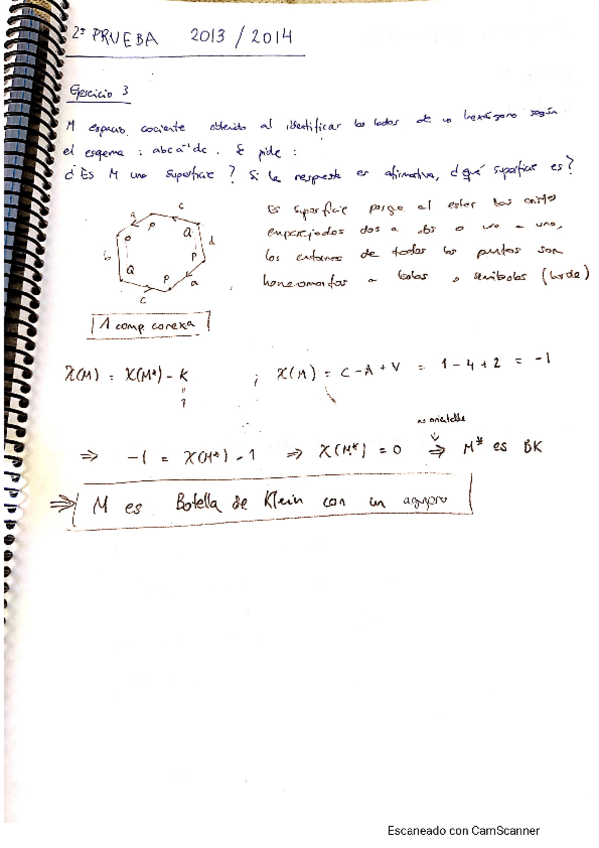 2ª PRUEBA 2013 / 2014
Ejercicio 3
M espacio cociente obtenido al identificar los lados de un hexágono según
el esquema : abca⁻¹dc . Se pide :
¿Es M una superficie ? Si la respuesta es afirmativa, ¿qué superficie es ?
Es superficie porque al estar las
emparejados dos a dos o uno a uno,
los entornos de todos los puntos son
homeomorfos a bolas o semibolas (borde)
a c
P Q
b d
Q P P
c a
1 comp. conexa
χ(M) = χ(M*) - K ; χ(M) = C - A + V = 1 - 4 + 2 = -1
?
no orientable
⇒ -1 = χ(M*) - 1 ⇒ χ(M*) = 0 ⇒ M* es BK
⇒ M es Botella de Klein con un agujero
Escaneado con CamScanner